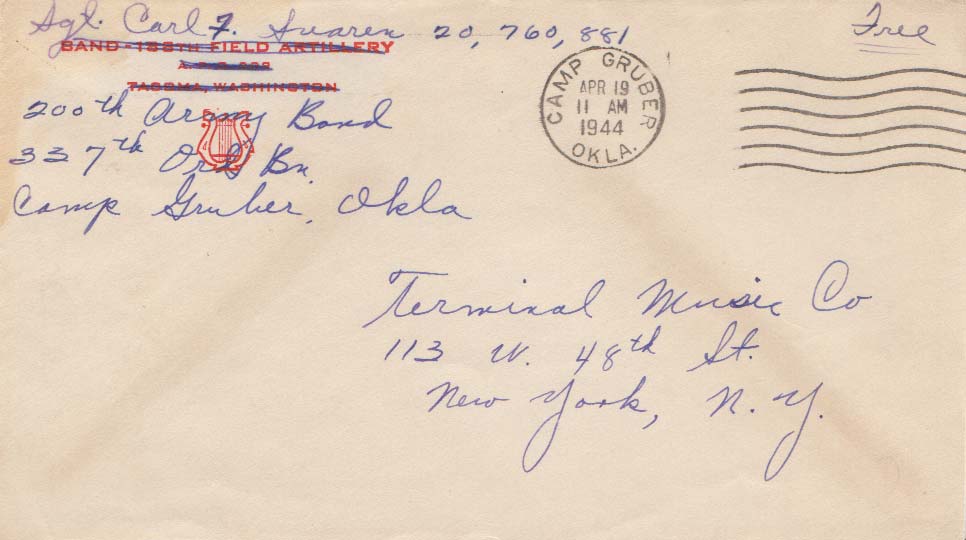 Sgt. Carl F. Suaren 20,760,881
BAND - 158TH FIELD ARTILLERY
TACOMA, WASHINGTON
200th Army Band
337th Ord Bn.
Camp Gruber, Okla
Free
CAMP GRUBER
APR 19
11 AM
1944
OKLA.
Terminal Music Co
113 W. 48th St.
New York, N.Y.